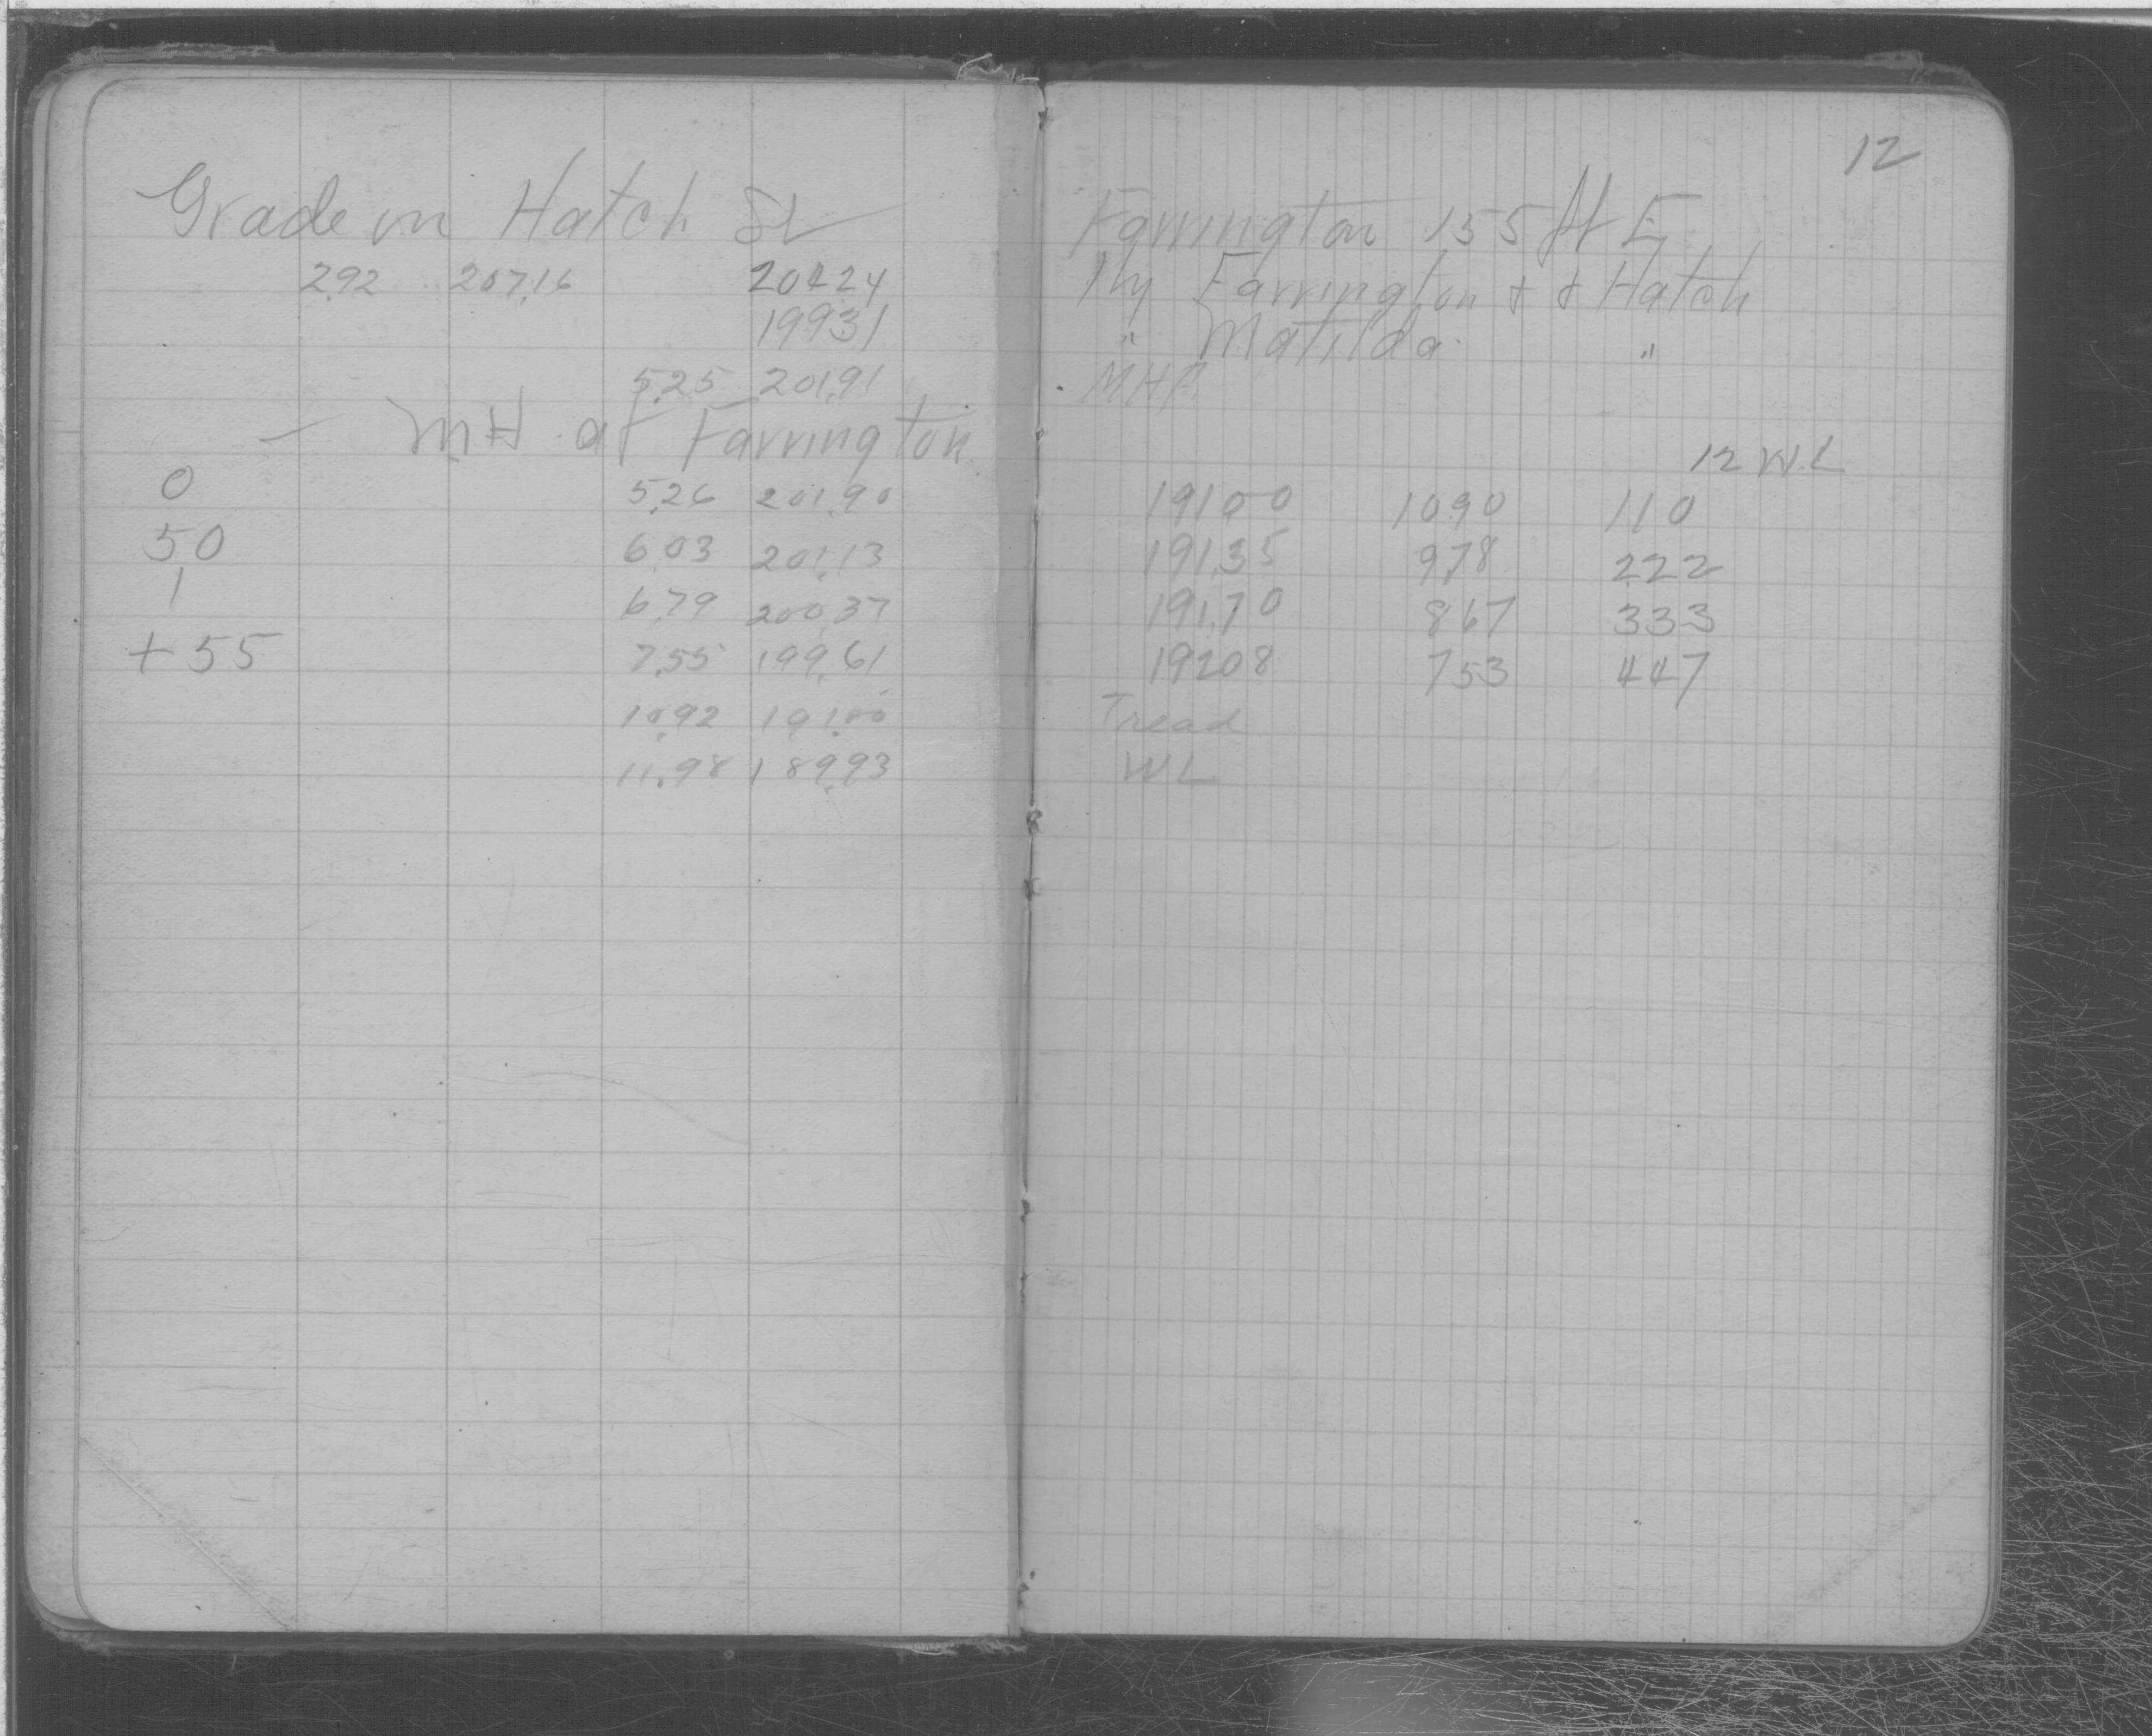 Grade on Hatch St
2.92 207.16 204.24
199.31
5.25 201.91
— MH at Farrington
0 5.26 201.90
50 6.03 201.13
1 6.79 200.37
+55 7.55 199.61
10.92 191.00
11.98 189.93
12
Farrington 155 ft E
Hy Farrington + + Hatch
" Matilda "
MH
12 WL
191.00 10.90 110
191.35 9.78 222
191.70 867 333
192.08 753 447
Tread
WL